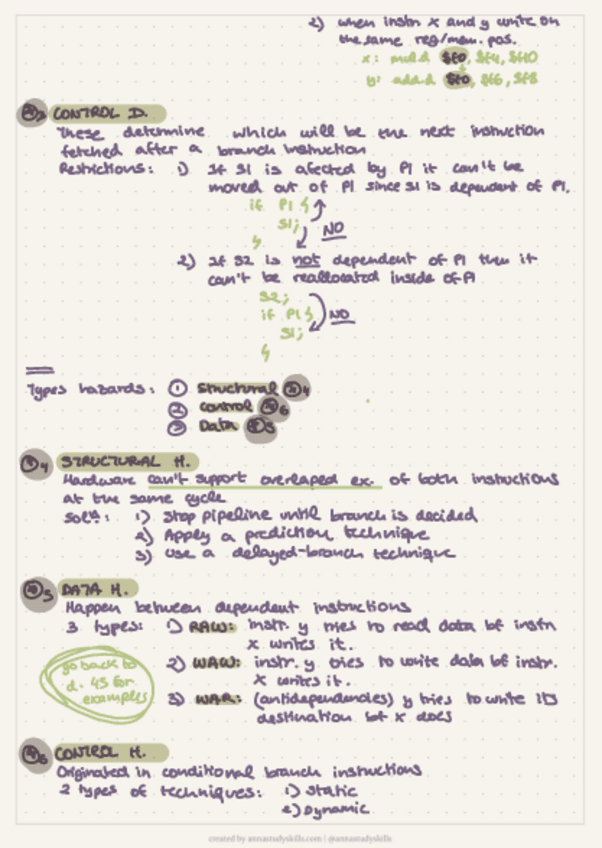 2) when instr x and y write on
the same reg/mem. pos.
x: mul.d $f0, $f4, $f10
y: add.d $f0, $f6, $f8
CONTROL D.
These determine which will be the next instruction
fetched after a branch instruction
Restrictions: 1) If S1 is afected by P1 it can't be
moved out of P1 since S1 is dependent of P1.
if P1 {
S1;
}
NO
2) If S2 is not dependent of P1 then it
can't be reallocated inside of P1
S2;
if P1 {
S1;
}
NO
Types hazards: 1 Structural 4
2 Control 6
3 Data 5
4 STRUCTURAL H.
Hardware can't support overlaped ex. of both instructions
at the same cycle
Solⁿ: 1) Stop pipeline until branch is decided
2) Apply a prediction technique
3) Use a delayed-branch technique
5 DATA H.
Happen between dependent instructions
3 types: 1) RAW: instr. y tries to read data bf instr
x writes it.
2) WAW: instr. y tries to write data bf instr.
x writes it.
3) WAR: (antidependencies) y tries to write its
destination bf x does
go back to
d. 45 for
examples
6 CONTROL H.
Originated in conditional branch instructions
2 types of techniques: 1) Static
2) Dynamic
created by annastudyskills.com | @annastudyskills